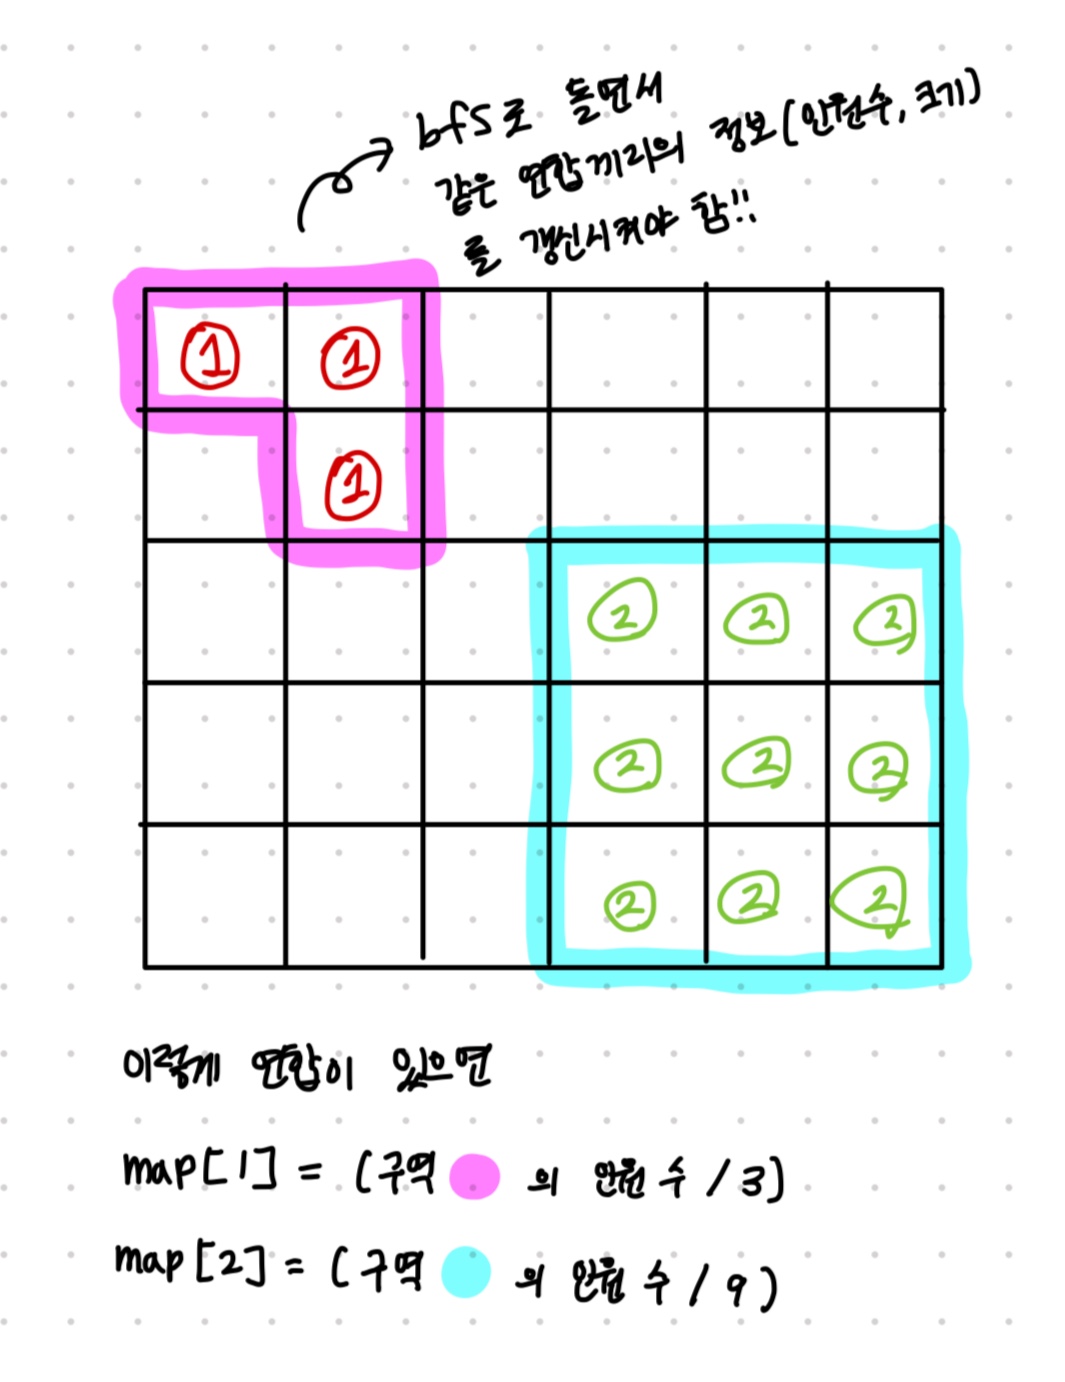 bfs로 돌면서
같은 연합끼리의 정보(인원수, 크기)
를 갱신시켜야 함!!
1 1
1
2 2 2
2 2 2
2 2 2
이렇게 연합이 있으면
map[1] = (구역 의 인원 수 / 3)
map[2] = (구역 의 인원 수 / 9)